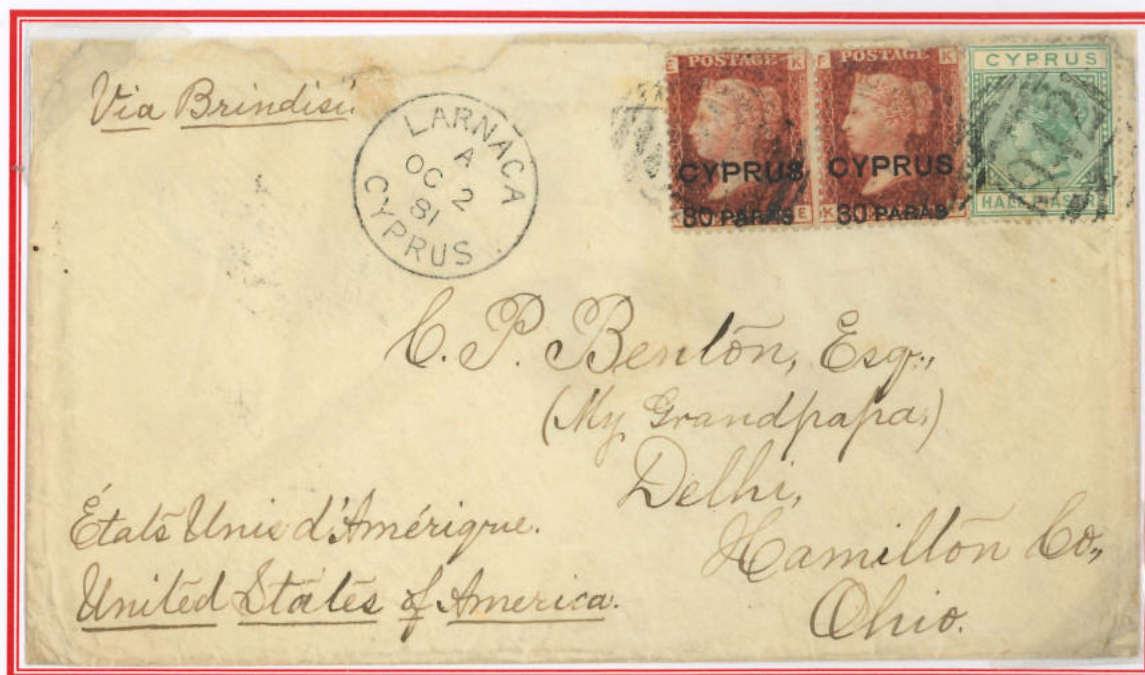 Via Brindisi.
LARNACA
A
OC 2
81
CYPRUS
E K
POSTAGE
CYPRUS
30 PARAS
K E
F K
POSTAGE
CYPRUS
30 PARAS
K F
CYPRUS
HALF PIASTRE
C. P. Benton, Esq.,
(My Grandpapa.)
Delhi,
Hamilton Co.,
Ohio.
États Unis d'Amérique.
United States of America.